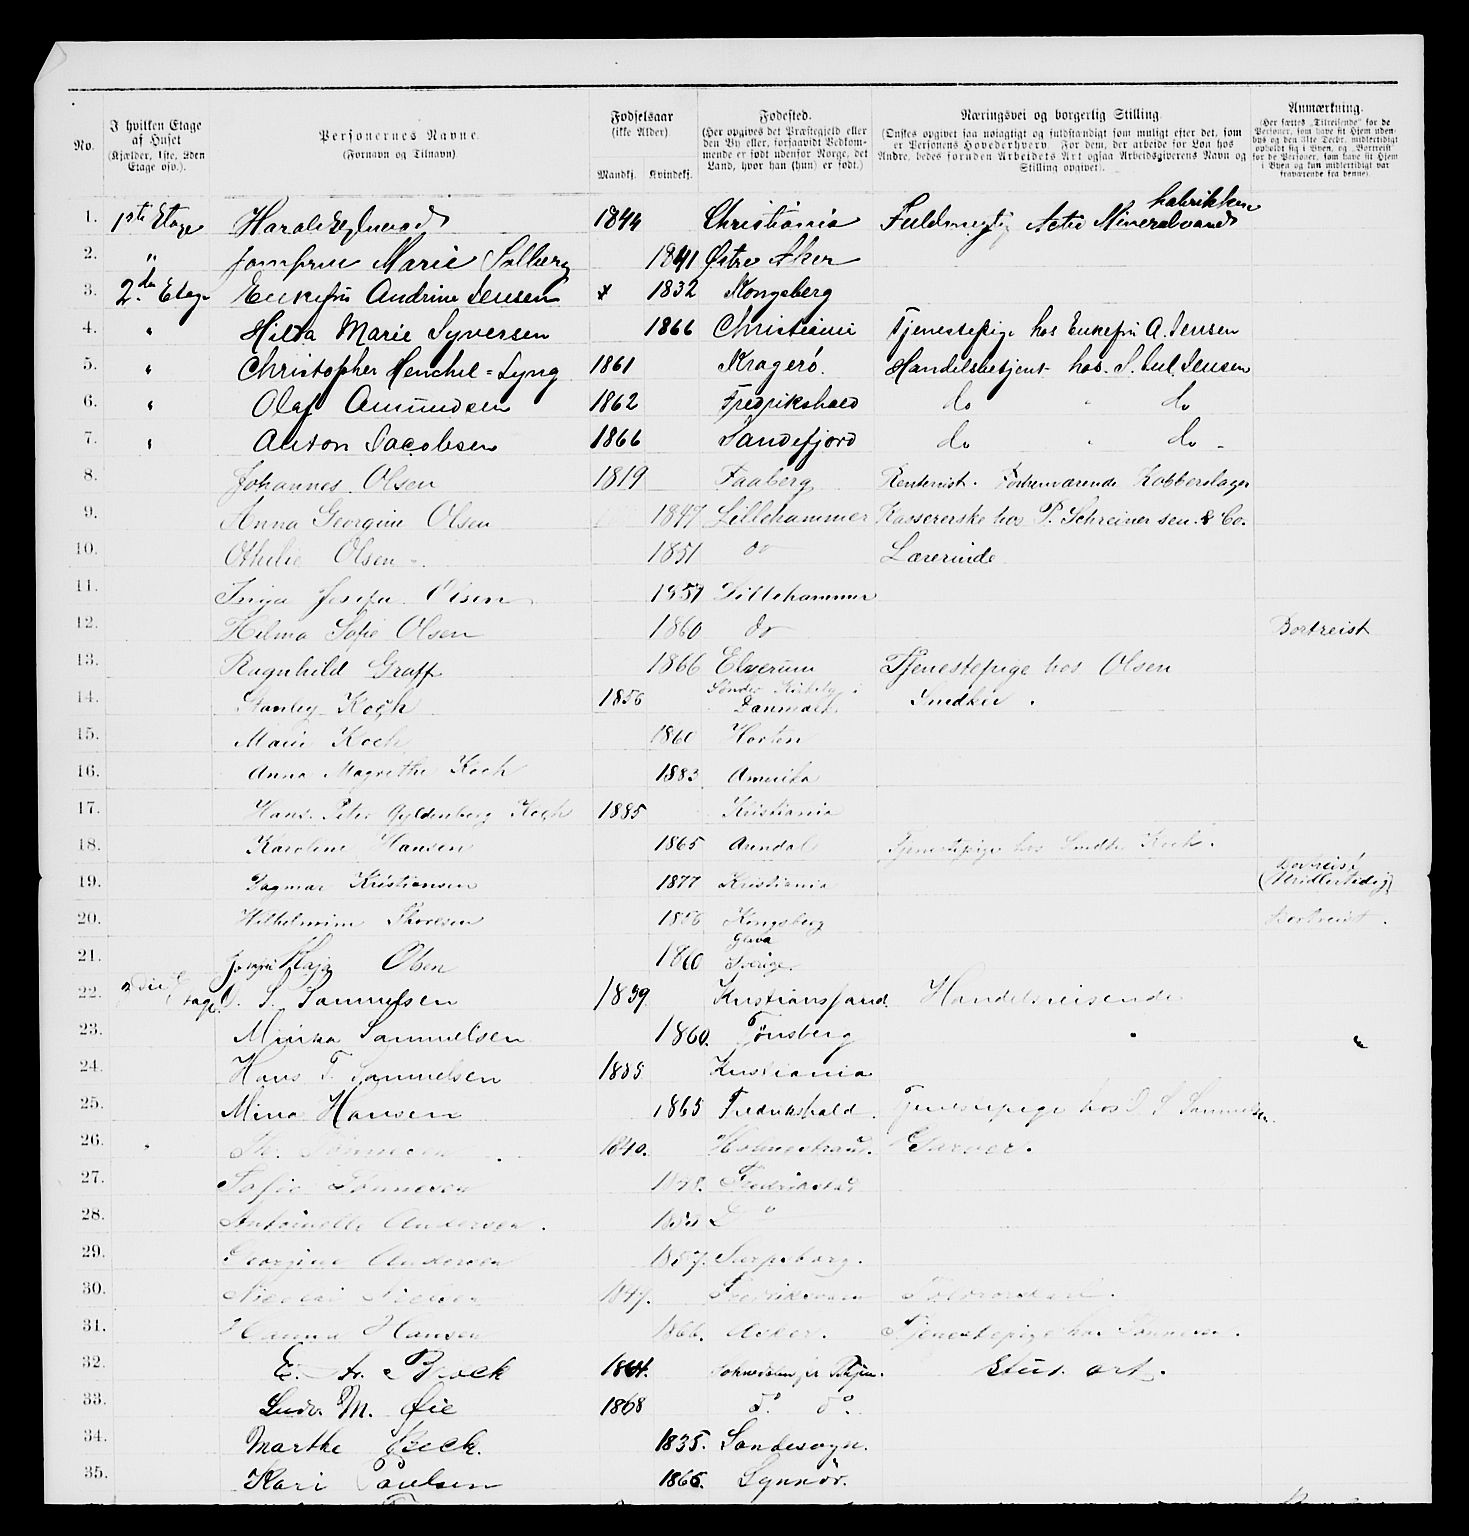 No. | I hvilken Etage af Huset (Kjælder, 1ste, 2den Etage osv.). | Personernes Navne. (Fornavn og Tilnavn) | Fødselsaar (ikke Alder) Mandkj. Kvindekj. | Fødested. (Her opgives det Præstegjeld eller den By eller, forsaavidt Vedkommende er født udenfor Norge, det Land, hvor han (hun) er født.) | Næringsvei og borgerlig Stilling. (Ønskes opgivet saa nøiagtigt og fuldstændigt som muligt efter det, som er Personens Hovederhverv. For dem, der arbeide for Løn hos Andre, bedes foruden Arbeidets Art ogsaa Arbeidsgiverens Navn og Stilling opgivet). | Anmærkning. (Her sættes „Tilreisende“ for de Personer, som have sit Hjem udenbys og den 31te Decbr. midlertidigt opholdt sig i Byen, og „Bortreist“ for de Personer, som have sit Hjem i Byen og kun midlertidigt var fraværende fra denne).
1. 1ste Etage Harald 1844 Christiania Fuldmegtig Actie Mineralvands fabrikken
2. " Jomfrue Marie Solberg 1841 Østre Aker
3. 2den Etage Enkefru Andrine Jensen x 1832 Kongsberg
4. " Hilda Marie Syversen 1866 Christiania Tjenestepige hos Enkefru A. Jensen
5. " Christopher Henchel=Lyng 1861 Kragerö. Handelsbetjent hos S. Jensen
6. " Olaf Amundsen 1862 Fredrikshald do " do
7. " Anton Jacobsen 1866 Sandefjord do " do -
8. Johannes Olsen 1819 Faaberg Rentenist. Forhenværende Kobberslager
9. Anna Georgine Olsen 1847 Lillehammer Kassererske hos P. Schreiner sen. & Co.
10. Othilie Olsen 1851 do Lærerinde
11. Inga Josefa Olsen 1857 Lillehammer
12. Hilma Sofie Olsen 1860 do Bortreist
13. Ragnhild Graff 1866 Elverum Tjenestepige hos Olsen
14. Stanley Koch 1856 Sönder i Danmark Snedker.
15. Marie Koch 1860 Horten
16. Anna Magrethe Koch 1883 Amerika
17. Hans Peter Gyldenberg Koch 1885 Kristiania
18. Karoline Hansen 1865 Arendal Tjenestepige hos Snedk. Koch.
19. Dagmar Kristiansen 1877 Kristiania bortreist (Midlertidig)
20. Wilhelmine Thoresen 1856 Kongsberg Bortreist.
21. Kaja Olsen 1860 Gleva Sverige.
22. 3die Etage. S. Samuelsen 1839 Kristiansand. Handelsreisende
23. Minka Samuelsen 1860. Tønsberg
24. Hans T. Samuelsen 1885 Kristiania
25. Mina Hansen 1865 Fredrikshald. Tjenestepige hos S. Samuelsen.
26. Th. Tönnesen 1840. Holmestrand. Garver.
27. Sofie Tönnesen Fredrikstad
28. Antoinette Andersen. Do
29. Georgine Andersen 1857. Sarpsborg.
30. Nicolai Nielsen 1847. Fredriksværn
31. Hanna Hansen 1866. Asker. Tjenestepige hos Tönnesen.
32. E. A. Brock 1864. Stud. art.
33. Ludv. M. Øie 1868 do. do.
34. Marthe Beck. 1835. Sandesogn.
35. Kari Paulsen 1866. Lyngör.